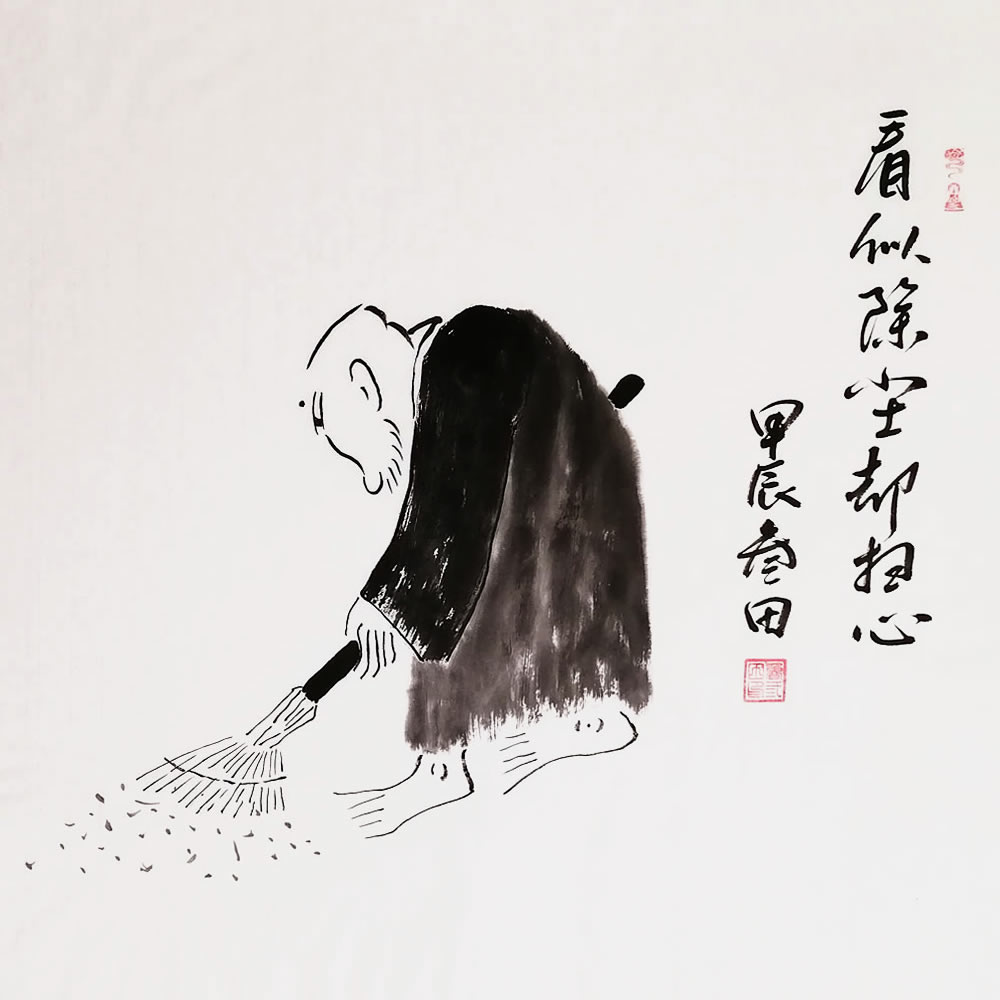 看似除尘却扫心
甲辰叁田